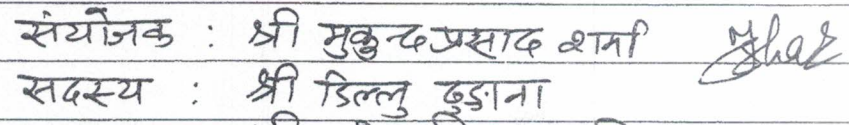 संयोजक : श्री मुकुन्द प्रसाद शर्मा
सदस्य : श्री डिल्लु ढुङाना